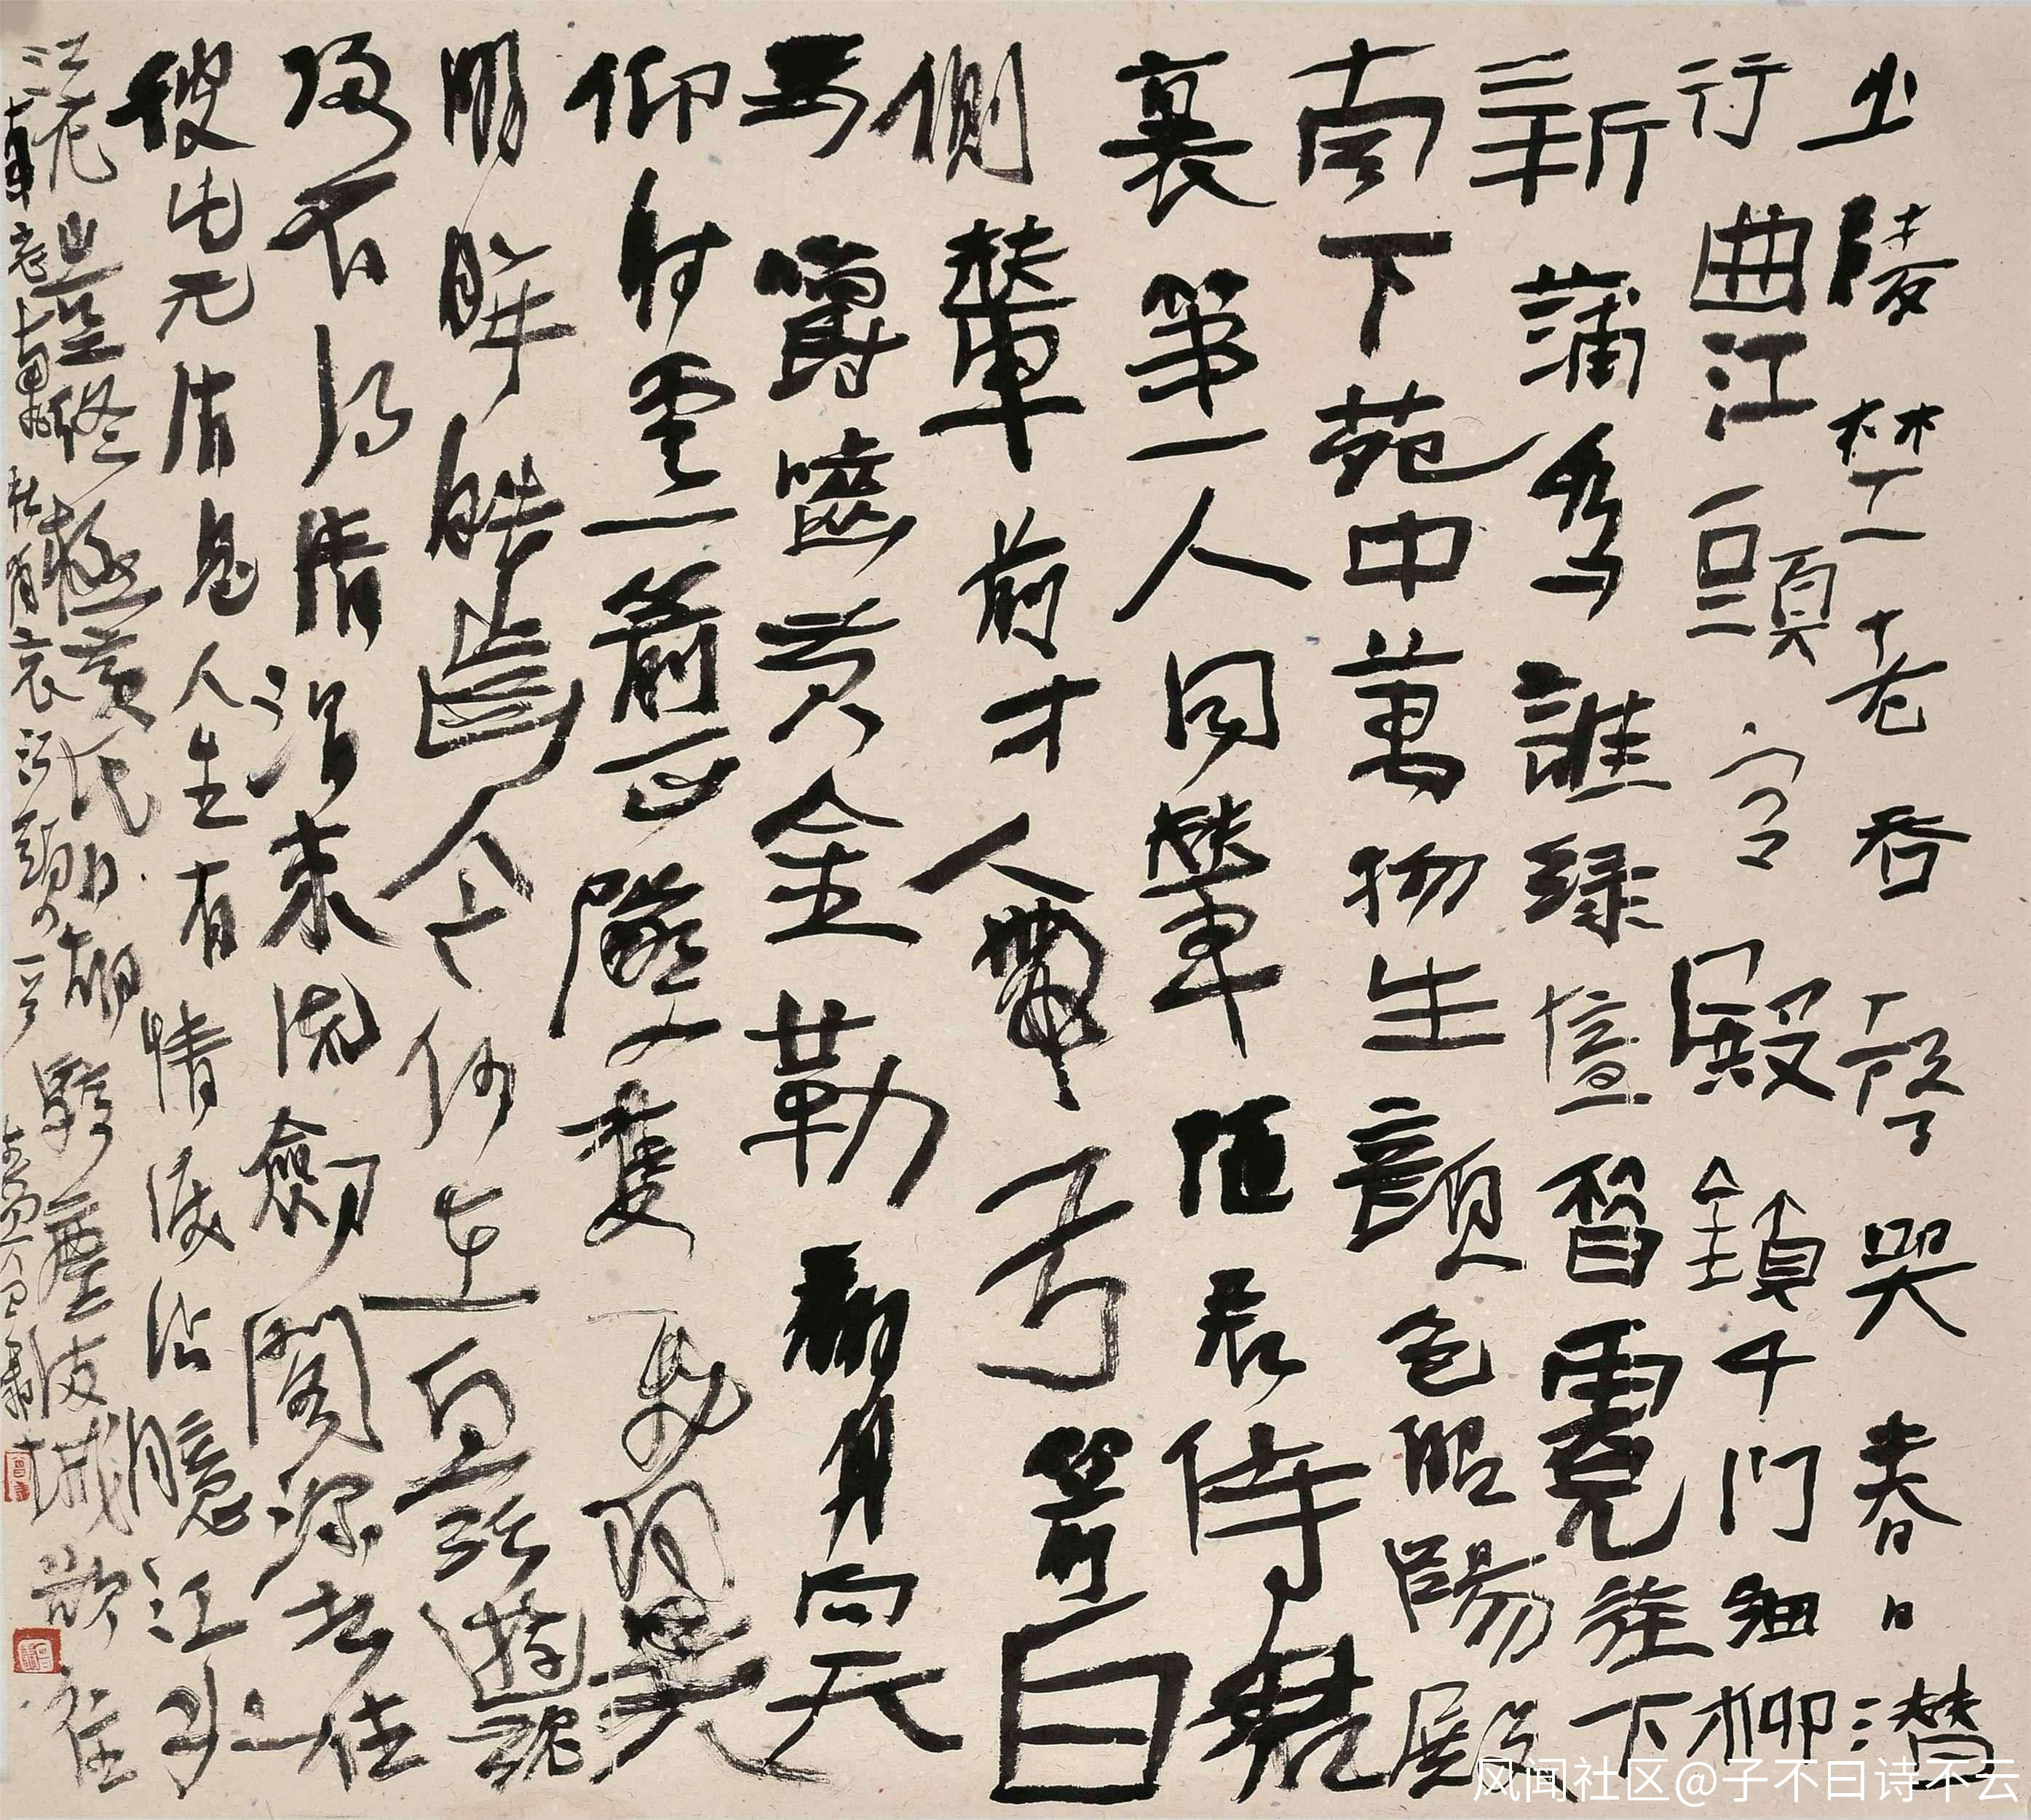 少陵埜老吞聲哭春日潛
行曲江頭宮殿鎖千門細柳
新蒲為誰綠憶昔霓旌下
南下苑中萬物生顏色昭陽殿
裏第一人同輦随君侍君
側輦前才人帶弓箭白
馬嚼齧黃金勒翻身向天
仰射雲一箭正墜雙飛翼
明眸皓齒今何在血污遊魂
歸不得清渭東流劍閣深去住
彼此无消息人生有情淚沾臆江水
江花豈終極黃昏胡騎塵滿城欲往
杜甫哀江頭一首
风闻社区@子不曰诗不云